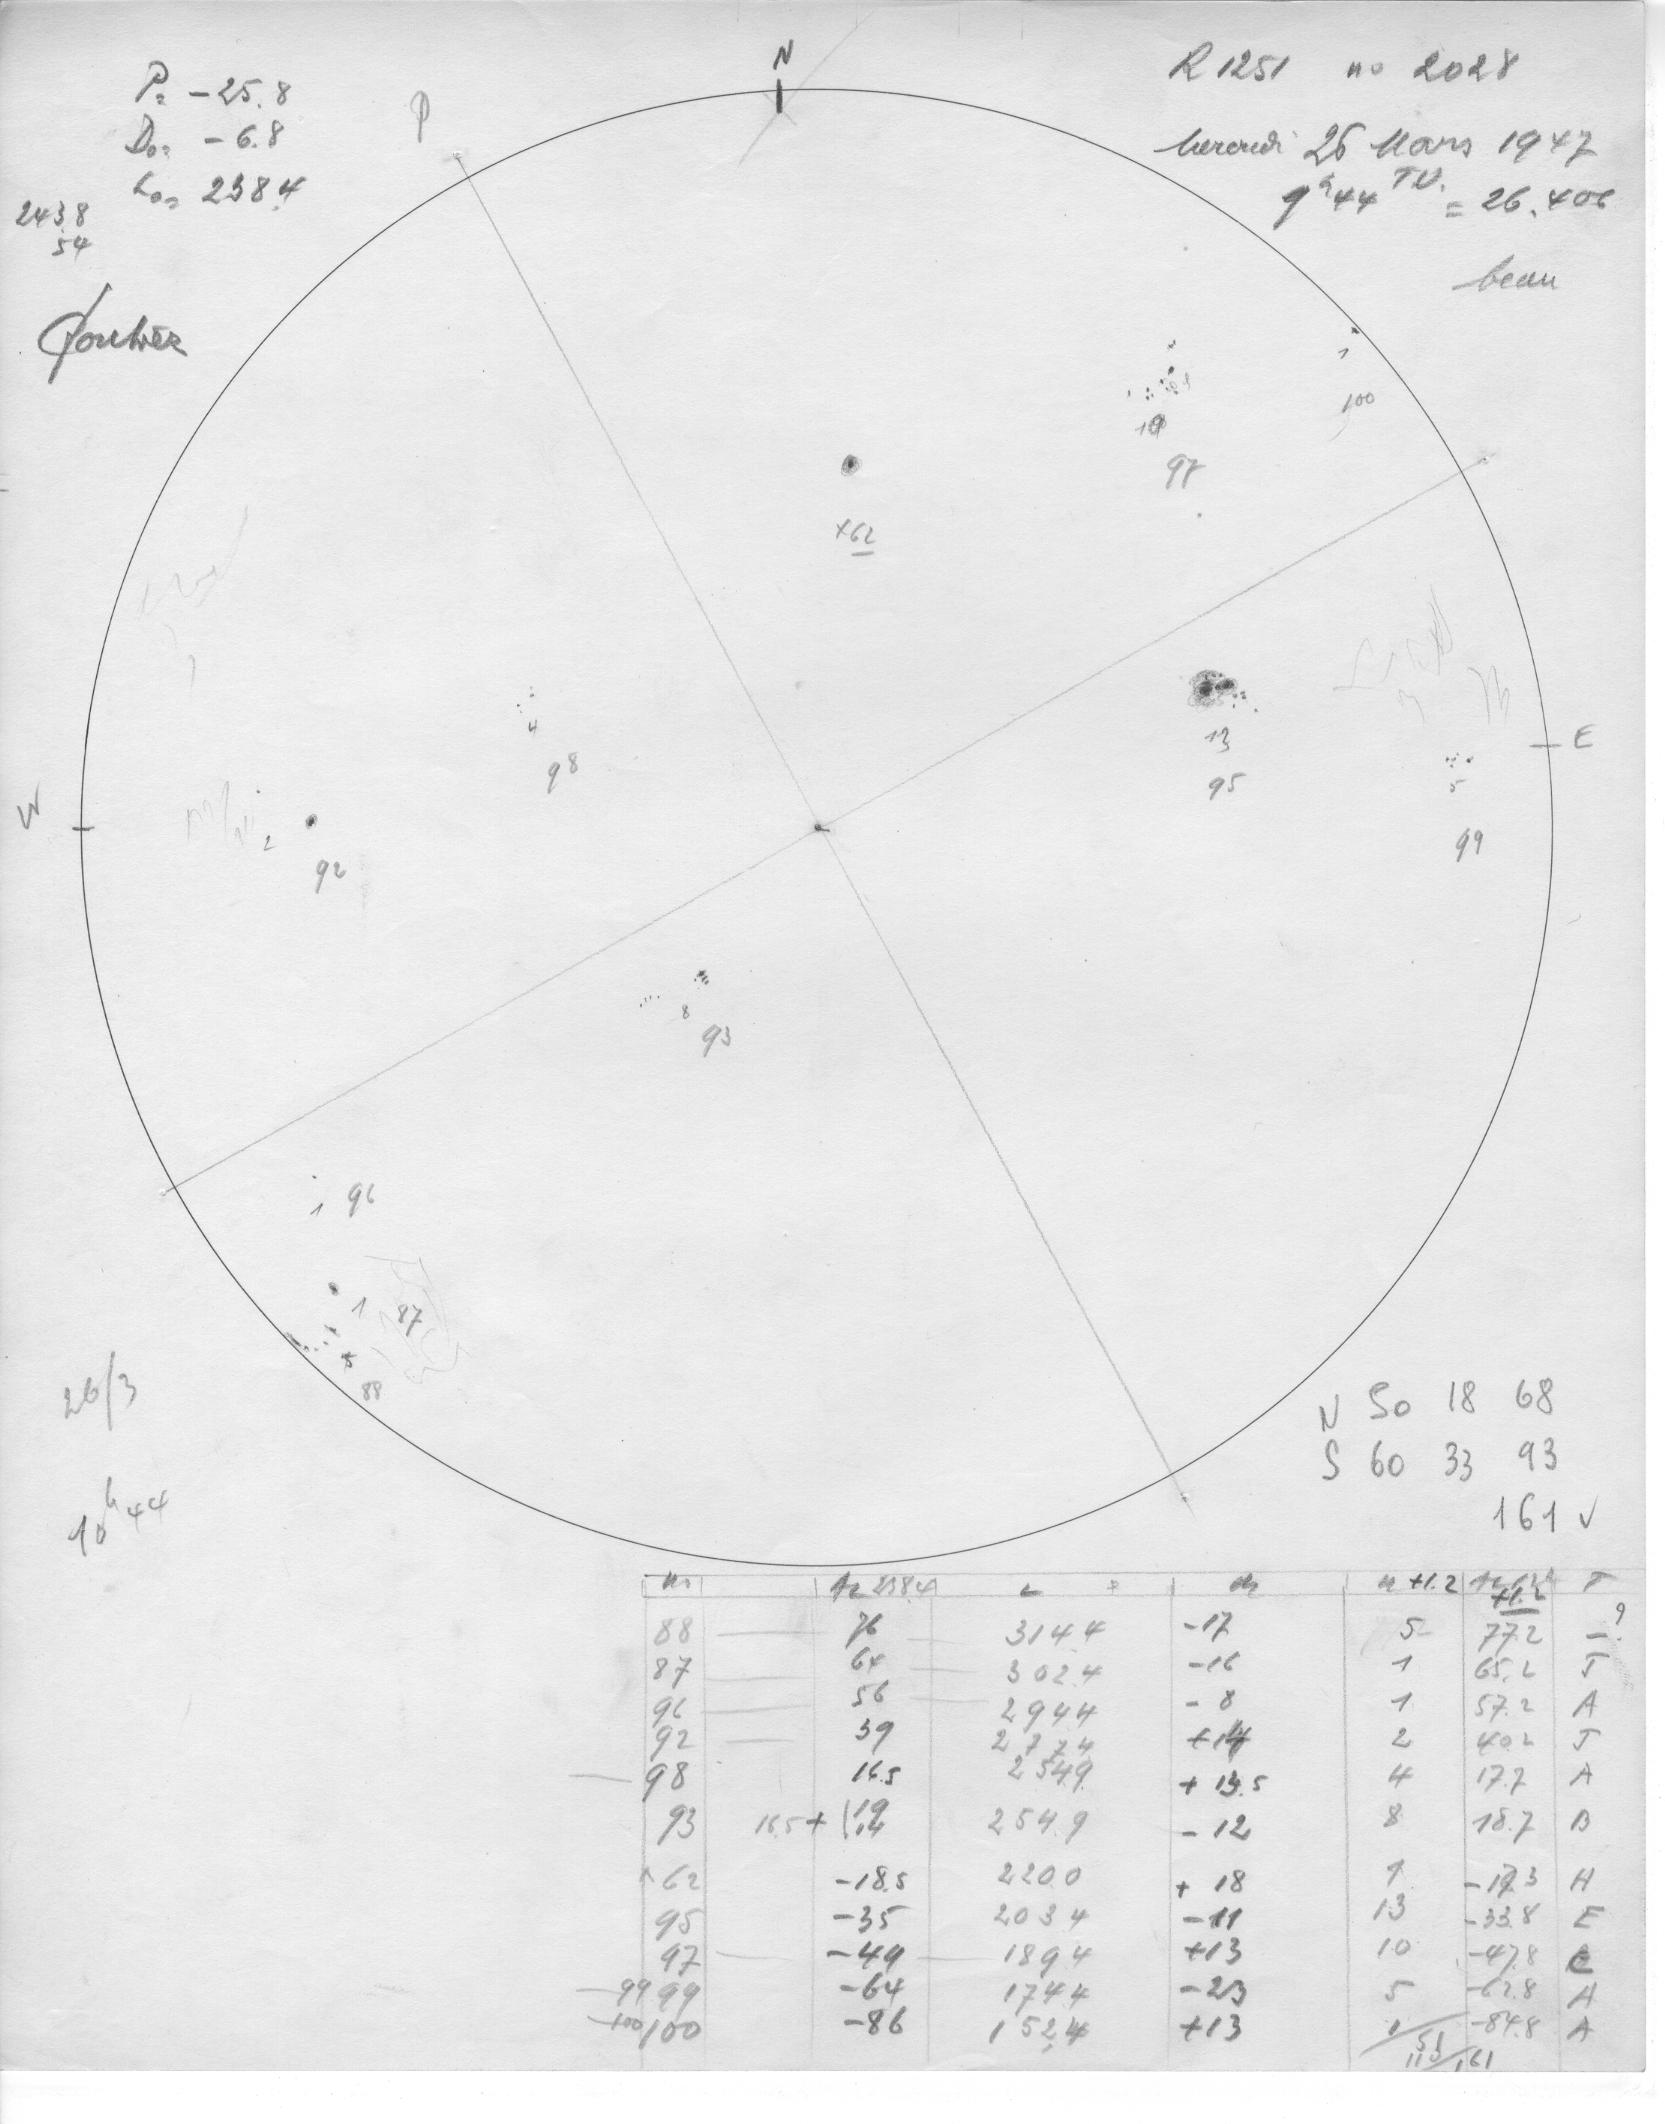 N
P= -25.8
R 1251 no 2028
D0= -6.8
P
Mercredi 26 Mars 1947
L0= 238.4
9h44 TU. = 26.406
243.8
54
beau
1
100
10
97
x62
13
95
E
5
99
4
98
W
2
92
8
93
1 96
1 87
5
88
26/3
10h44
N 50 18 68
S 60 33 93
161 ✓
238.4 L n +1.2 +1.2 T
88 76 314.4 -17 5 77.2 - ?
87 64 302.4 -16 1 65.2 J
96 56 294.4 -8 1 57.2 A
92 39 277.4 +14 2 40.2 J
98 16.5 254.9 +13.5 4 17.7 A
93 16.5+ 19 14 254.9 -12 8 18.7 B
x62 -18.5 220.0 +18 1 -17.3 H
95 -35 203.4 -11 13 -33.8 E
97 -49 189.4 +13 10 -47.8 C
99 99 -64 174.4 -23 5 -62.8 A
100 100 -86 152.4 +13 1 -84.8 A
51
110 161